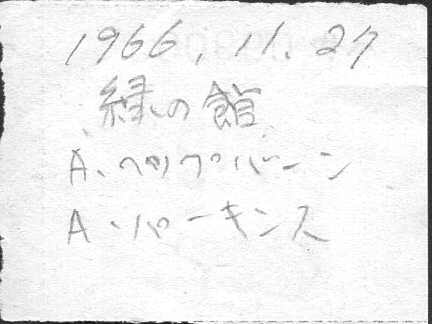 1966.11.27
緑の館
A.ヘップバーン
A.パーキンス